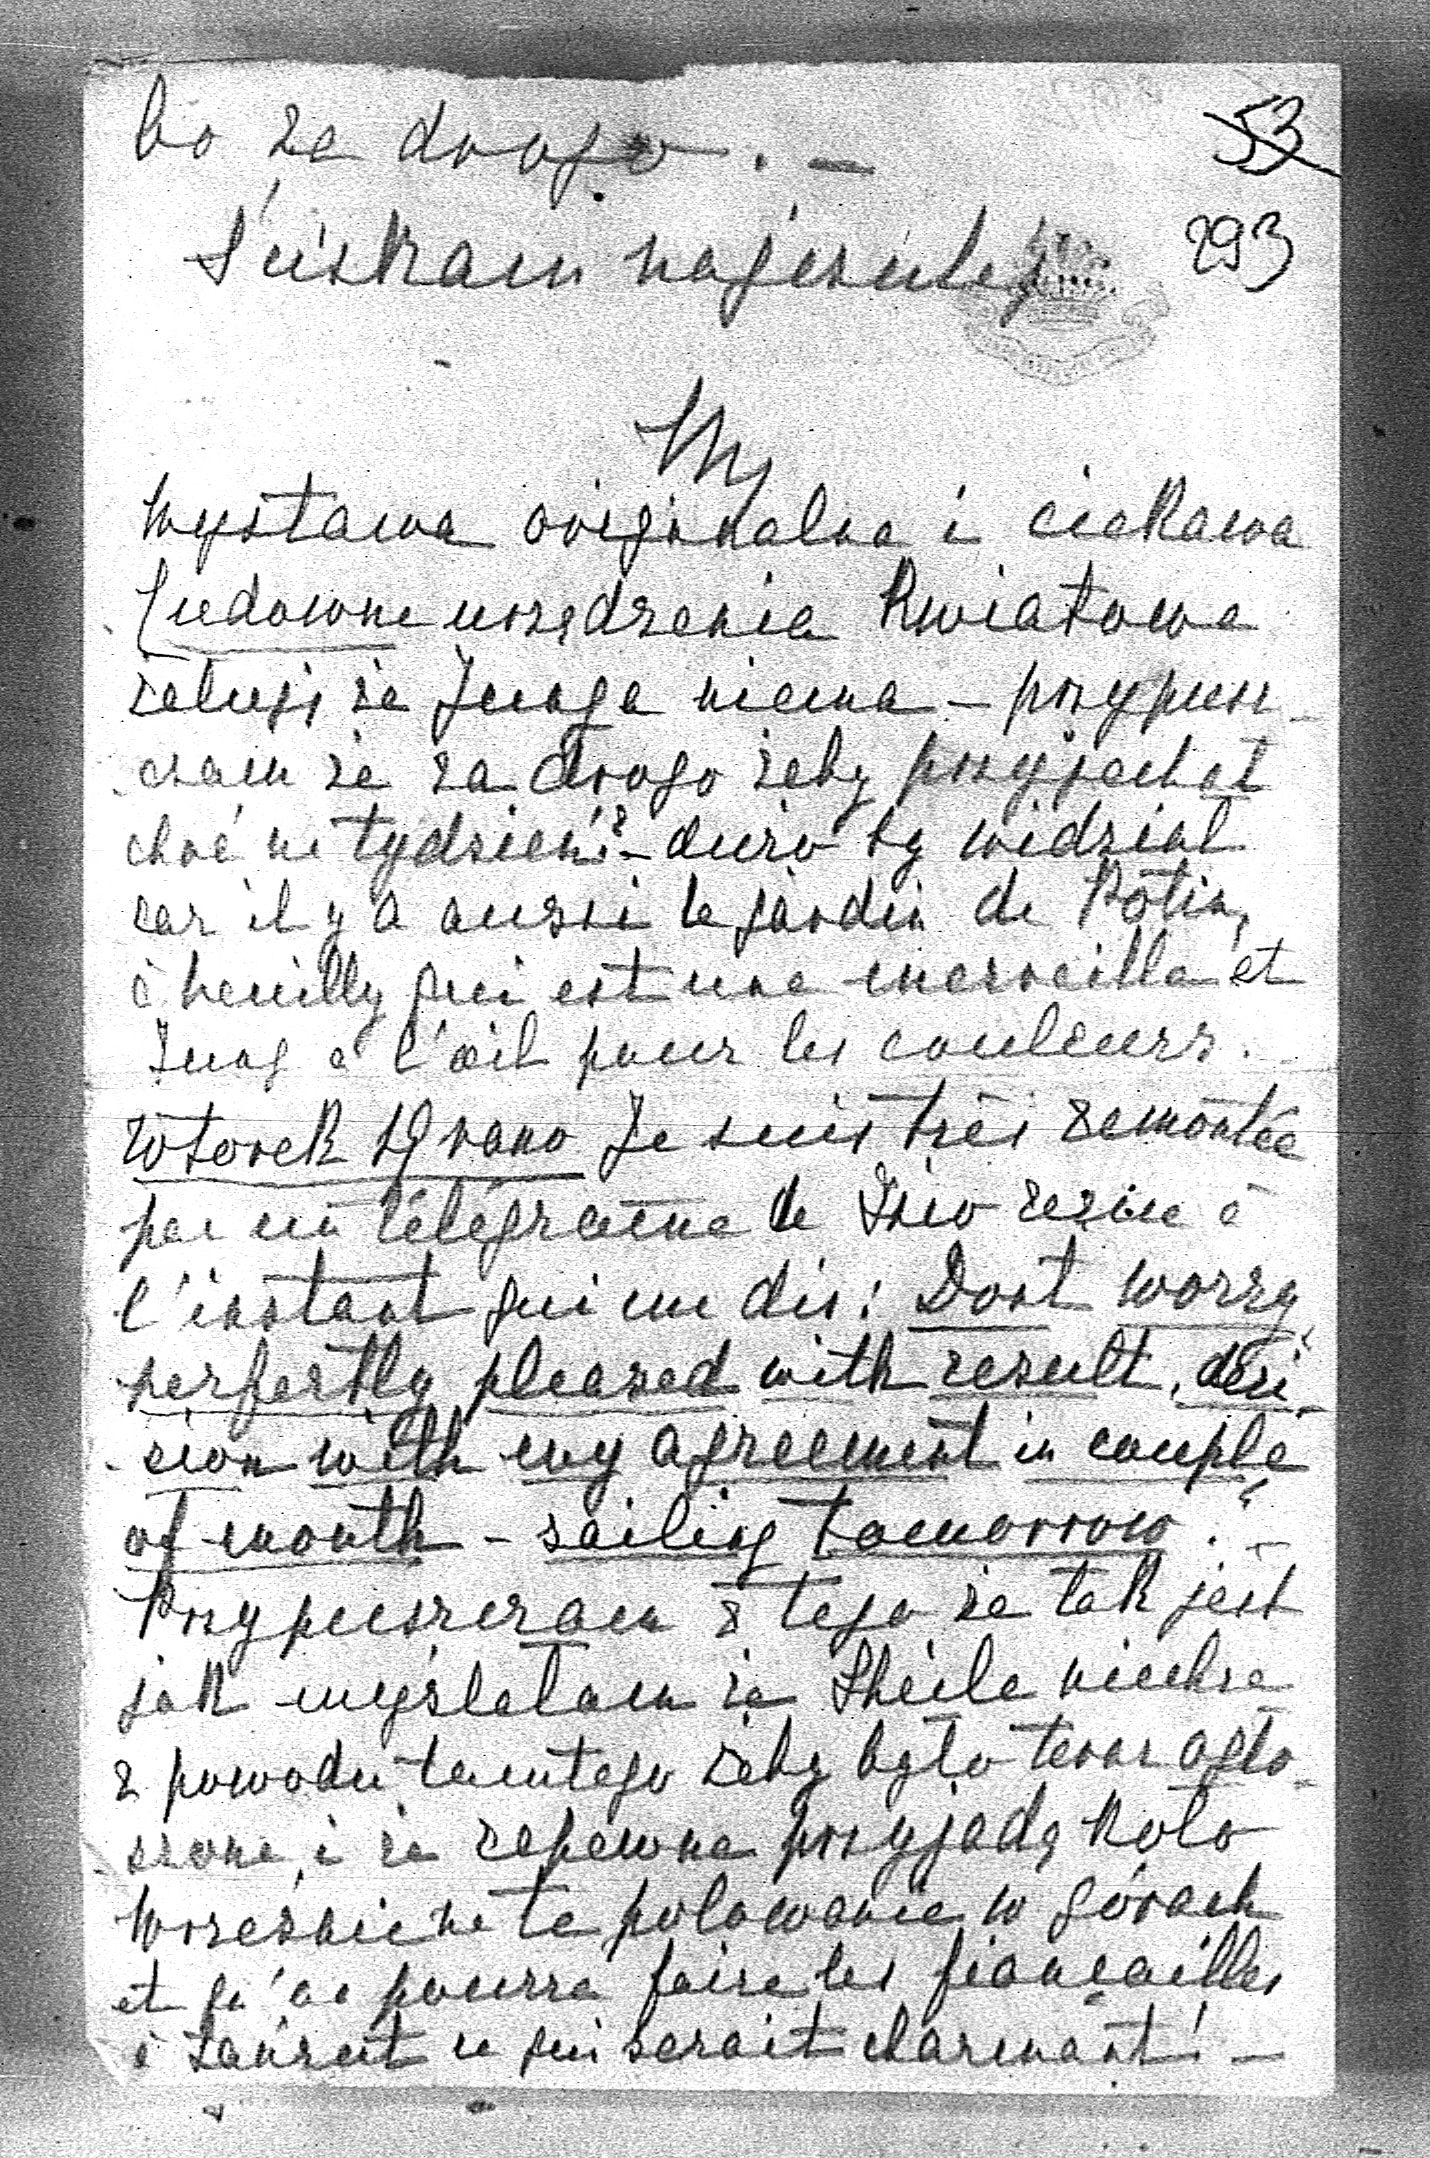 bo za drogo. —
53
Ściskam najczulej
293
My
Wystawa originalna i ciekawa
Cudowne urządzenia Kwiatowe
żeluję że Jurga niema — przypusz-
czam że za drogo żeby przyjechał
choć na tydzień? — dużo by widział
car il y a aussi le jardin de Potin,
à Neuilly qui est une merveille et
Jurg a l'œil pour les couleurs.
Wtorek 19 rano Je suis très remontée
par un télégramme de reçue à
l'instant qui me dis: Dont worry
perfectly pleased with result, deci-
sion with my agreement in couple
of month - sailing tomorrow." —
Przypuszczam z tego że tak jest
jak myślałam że Sheila niechce
z powodu tamtego żeby było teraz ogło-
szone, i że zapewne przyjadą koło
Września na te polowanie w górach
et qu'on pourra faire les fiançailles
à Łańcut ce qui serait charmant! —